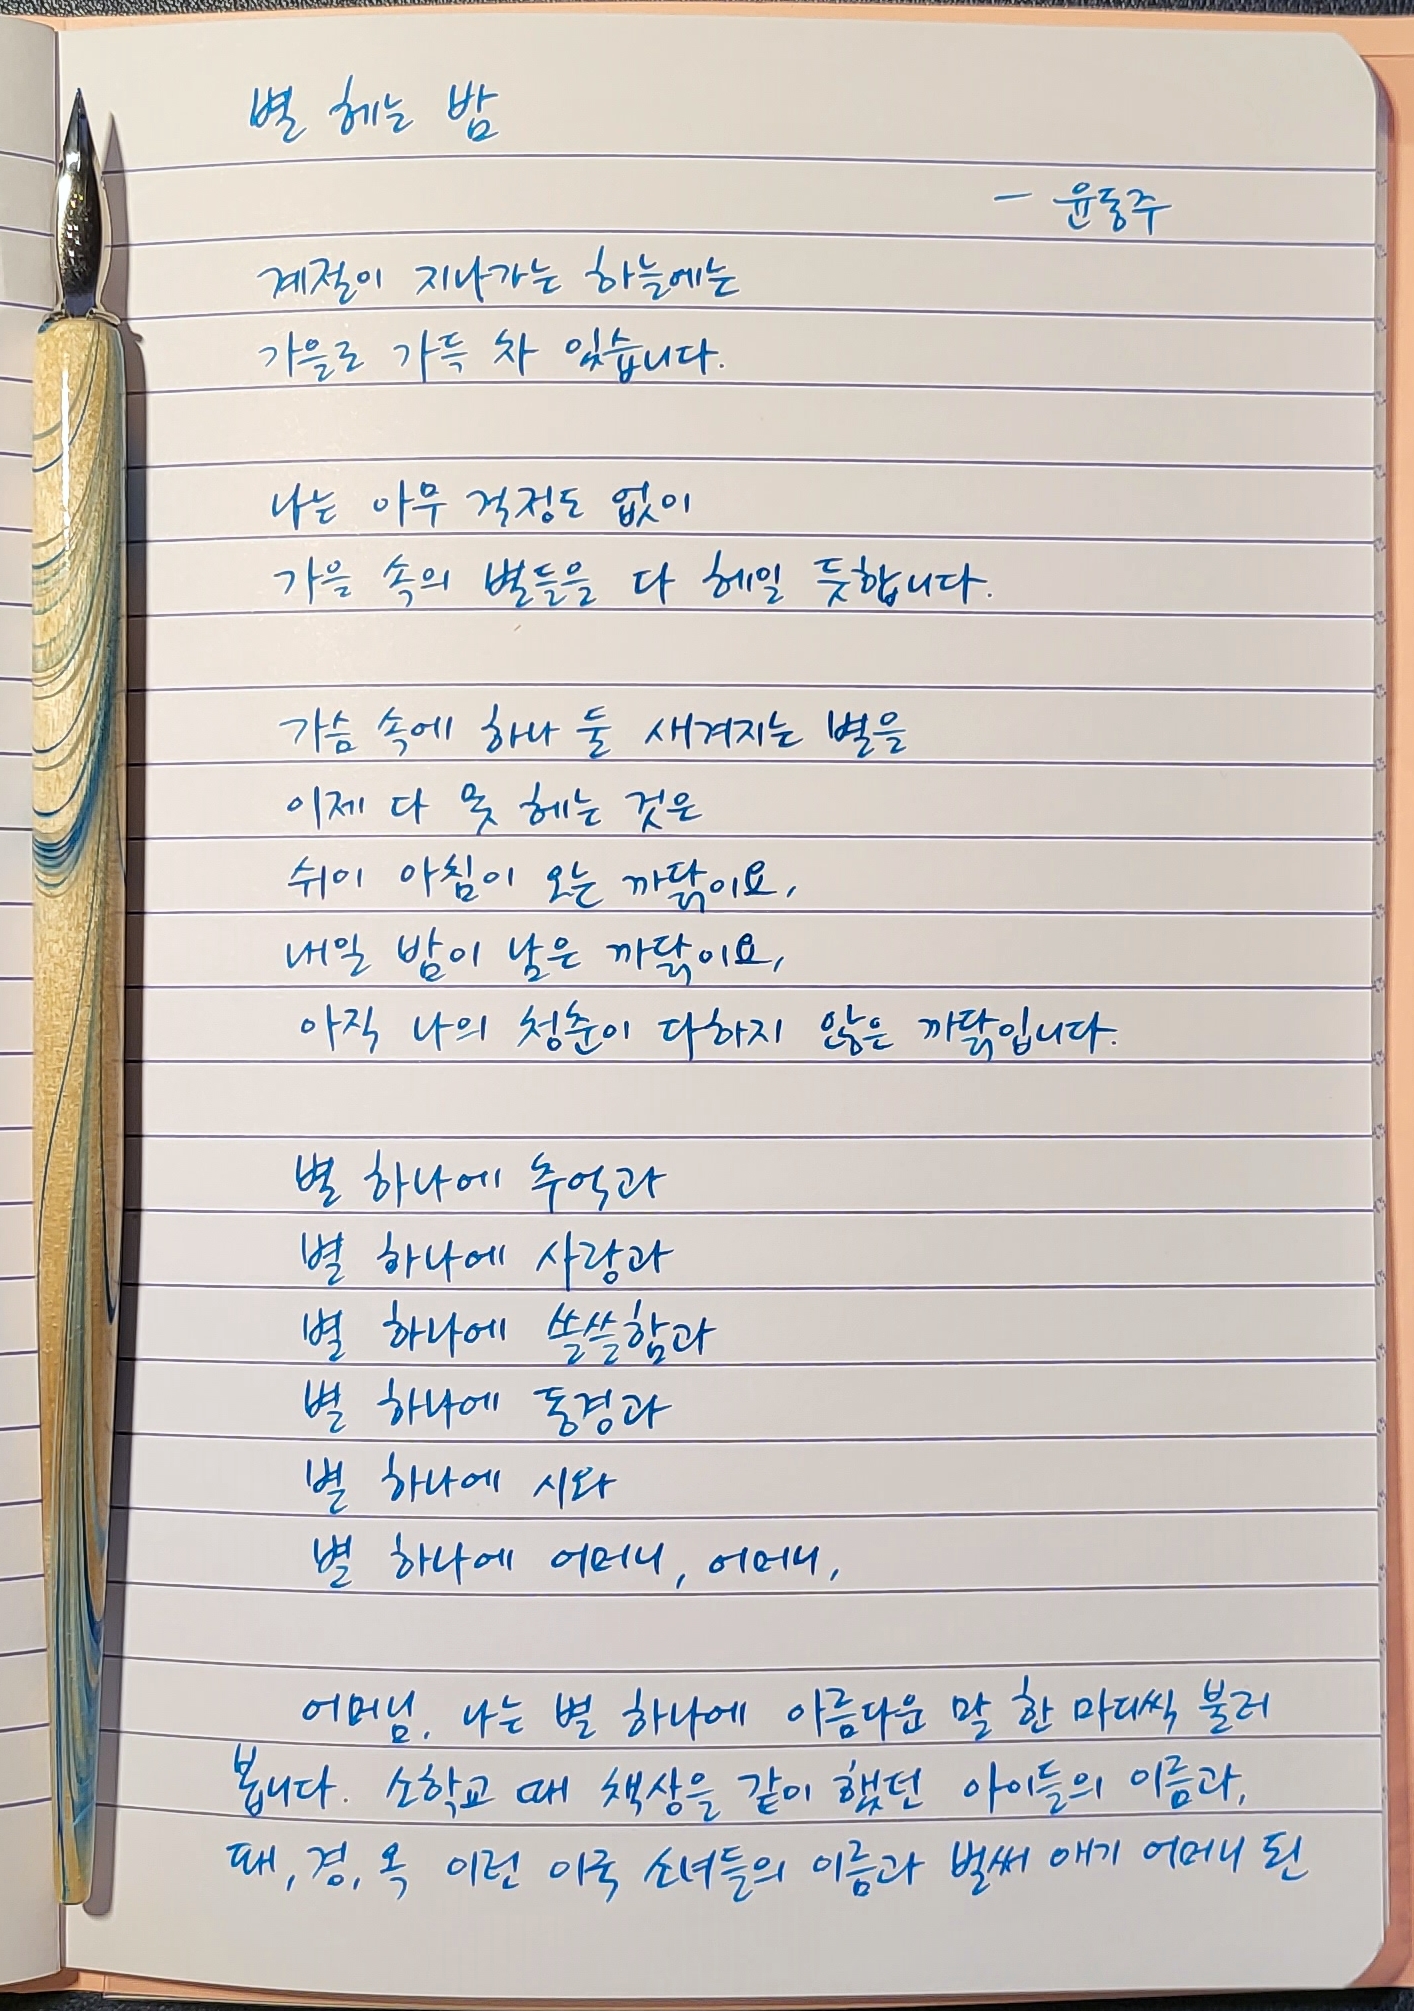 별 헤는 밤
- 윤동주
계절이 지나가는 하늘에는
가을로 가득 차 있습니다.
나는 아무 걱정도 없이
가을 속의 별들을 다 헤일 듯합니다.
가슴 속에 하나 둘 새겨지는 별을
이제 다 못 헤는 것은
쉬이 아침이 오는 까닭이요,
내일 밤이 남은 까닭이요,
아직 나의 청춘이 다하지 않은 까닭입니다.
별 하나에 추억과
별 하나에 사랑과
별 하나에 쓸쓸함과
별 하나에 동경과
별 하나에 시와
별 하나에 어머니, 어머니,
어머님, 나는 별 하나에 아름다운 말 한 마디씩 불러
봅니다. 소학교 때 책상을 같이 했던 아이들의 이름과,
패, 경, 옥 이런 이국 소녀들의 이름과 벌써 애기 어머니 된